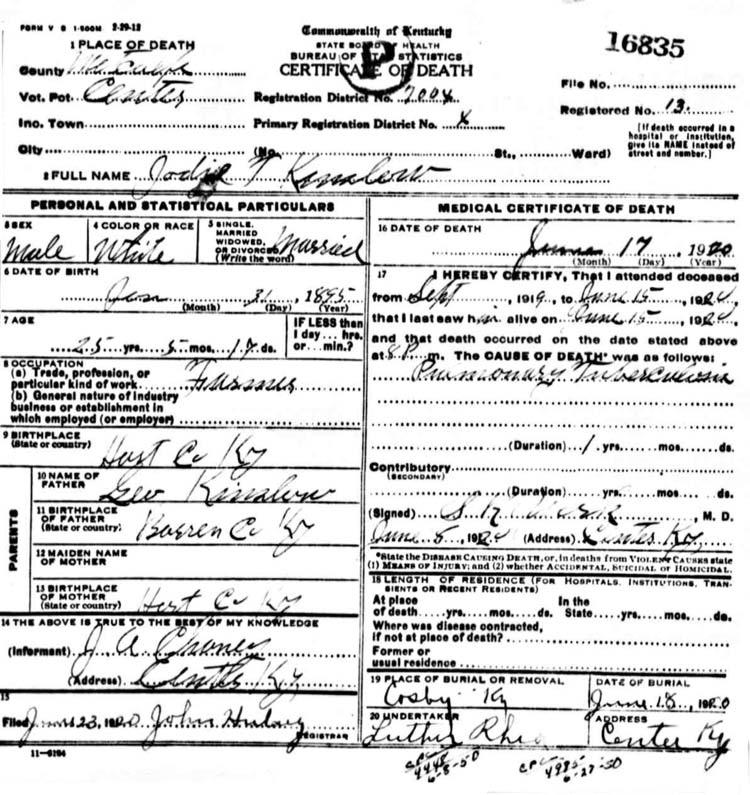 FORM V S 1-500M 2-29-12
Commonwealth of Kentucky
STATE BOARD OF HEALTH
BUREAU OF VITAL STATISTICS
CERTIFICATE OF DEATH
16835
1 PLACE OF DEATH
County Metcalfe
Vot. Pct Center
Inc. Town
City (No. St., Ward)
Registration District No. 7004
Primary Registration District No. X
File No.
Registered No. 13.
[If death occurred in a
hospital or institution,
give its NAME instead of
street and number.]
2 FULL NAME T Kinslow
PERSONAL AND STATISTICAL PARTICULARS
3 SEX
Male
4 COLOR OR RACE
White
5 SINGLE,
MARRIED
WIDOWED,
OR DIVORCED
(Write the word)
Married
6 DATE OF BIRTH
Jan 31, 1895
(Month) (Day) (Year)
7 AGE
25 yrs. 5 mos. 17 ds.
IF LESS than
1 day... hrs.
or... min.?
8 OCCUPATION
(a) Trade, profession, or
particular kind of work Farmer
(b) General nature of industry
business or establishment in
which employed (or employer)
9 BIRTHPLACE
(State or country)
Hart Co Ky
PARENTS
10 NAME OF
FATHER
Geo Kinslow
11 BIRTHPLACE
OF FATHER
(State or country)
Barren Co Ky
12 MAIDEN NAME
OF MOTHER
13 BIRTHPLACE
OF MOTHER
(State or country)
Hart Co Ky
14 THE ABOVE IS TRUE TO THE BEST OF MY KNOWLEDGE
(Informant) J A
(Address) Center Ky
15
Filed June 23, 1920 John
REGISTRAR
11-6194
MEDICAL CERTIFICATE OF DEATH
16 DATE OF DEATH
June 17 1920
(Month) (Day) (Year)
17 I HEREBY CERTIFY, That I attended deceased
from Sept, 1919, to June 15, 1920,
that I last saw him alive on June 15, 1920,
and that death occurred on the date stated above
at m. The CAUSE OF DEATH* was as follows:
Pulmonary Tuberculosis
(Duration) 1 yrs. mos. ds.
Contributory
(SECONDARY)
(Duration) yrs. mos. ds.
(Signed) , M. D.
June 1920 (Address) Center Ky
*State the DISEASE CAUSING DEATH, or, in deaths from VIOLENT CAUSES state
(1) MEANS OF INJURY; and (2) whether ACCIDENTAL, SUICIDAL or HOMICIDAL.
18 LENGTH OF RESIDENCE (FOR HOSPITALS, INSTITUTIONS, TRAN-
SIENTS OR RECENT RESIDENTS)
At place
of death yrs. mos. ds.
In the
State yrs. mos. ds.
Where was disease contracted,
if not at place of death?
Former or
usual residence
19 PLACE OF BURIAL OR REMOVAL
Cosby Ky
DATE OF BURIAL
June 18, 1920
20 UNDERTAKER
Luther Rhea
ADDRESS
Center Ky
6-8-50
6-27-50